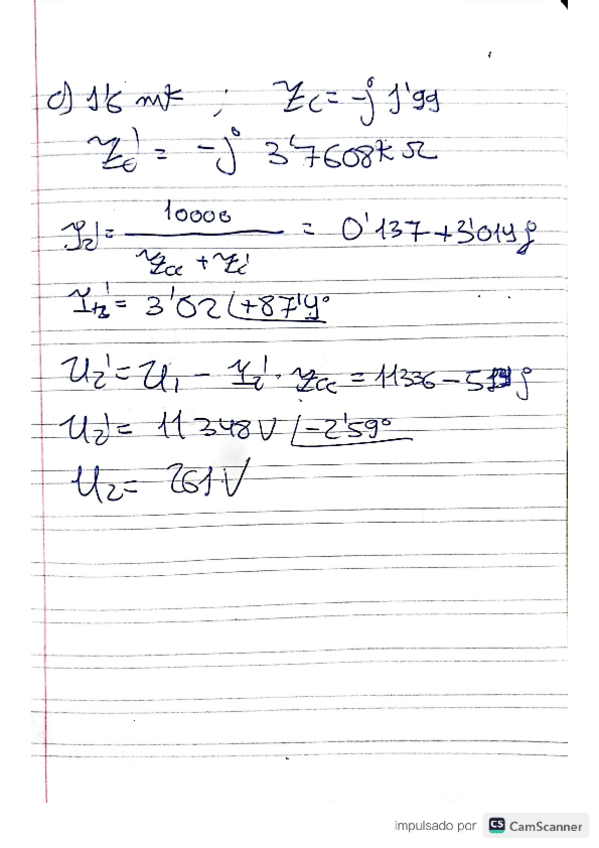 c) 1'6 mF ; Zc = -j 1'99
Zc' = -j 3'7608 k Ω
I2' = 10000 / (Zcc + Zc') = 0'137 + 3'014 j
I2' = 3'02 ∠+87'4°
U2' = U1 - I2' · Zcc = 11336 - j
U2' = 11348 V ∠-2'59°
U2 = 261 V
impulsado por CS CamScanner